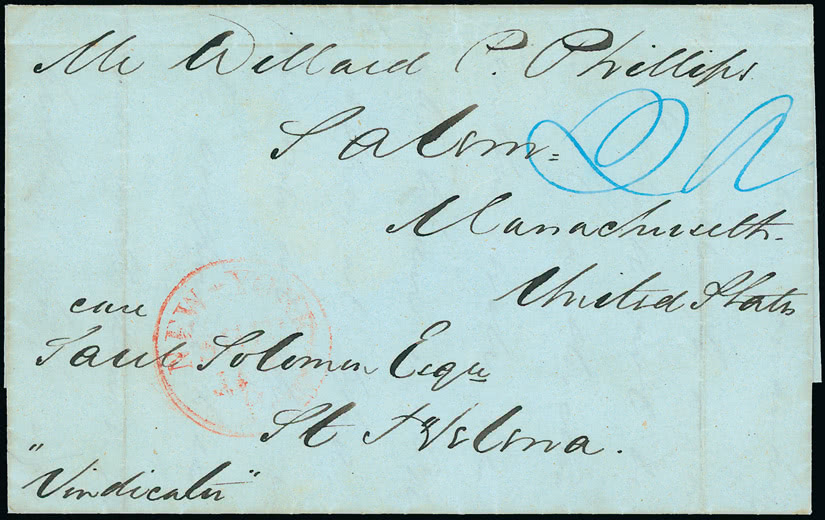 Mr Willard P. Phillips
Salem
Massachusetts
United States
care
Saul Solomon Esqre
St Helena.
"Vindicator"
NEW-YORK